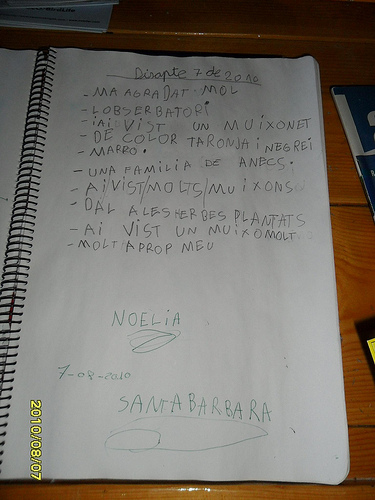 Disapte 7 de 2010
- MA AGRADAT MOL
- LOBSERBATORI
- I AI VIST UN MUIXONET
- DE COLOR TARONJA I NEGREI
- MARRO.
- UNA FAMILIA DE ANECS.
- AI/VIST/MOLTS/MUIXONS
- DAL ALES HERBES PLANTATS
- AI VIST UN MUIXO MOLT
- MOLT APROP MEU
NOELIA
7-08-2010
SANTA BARBARA
2010/08/07